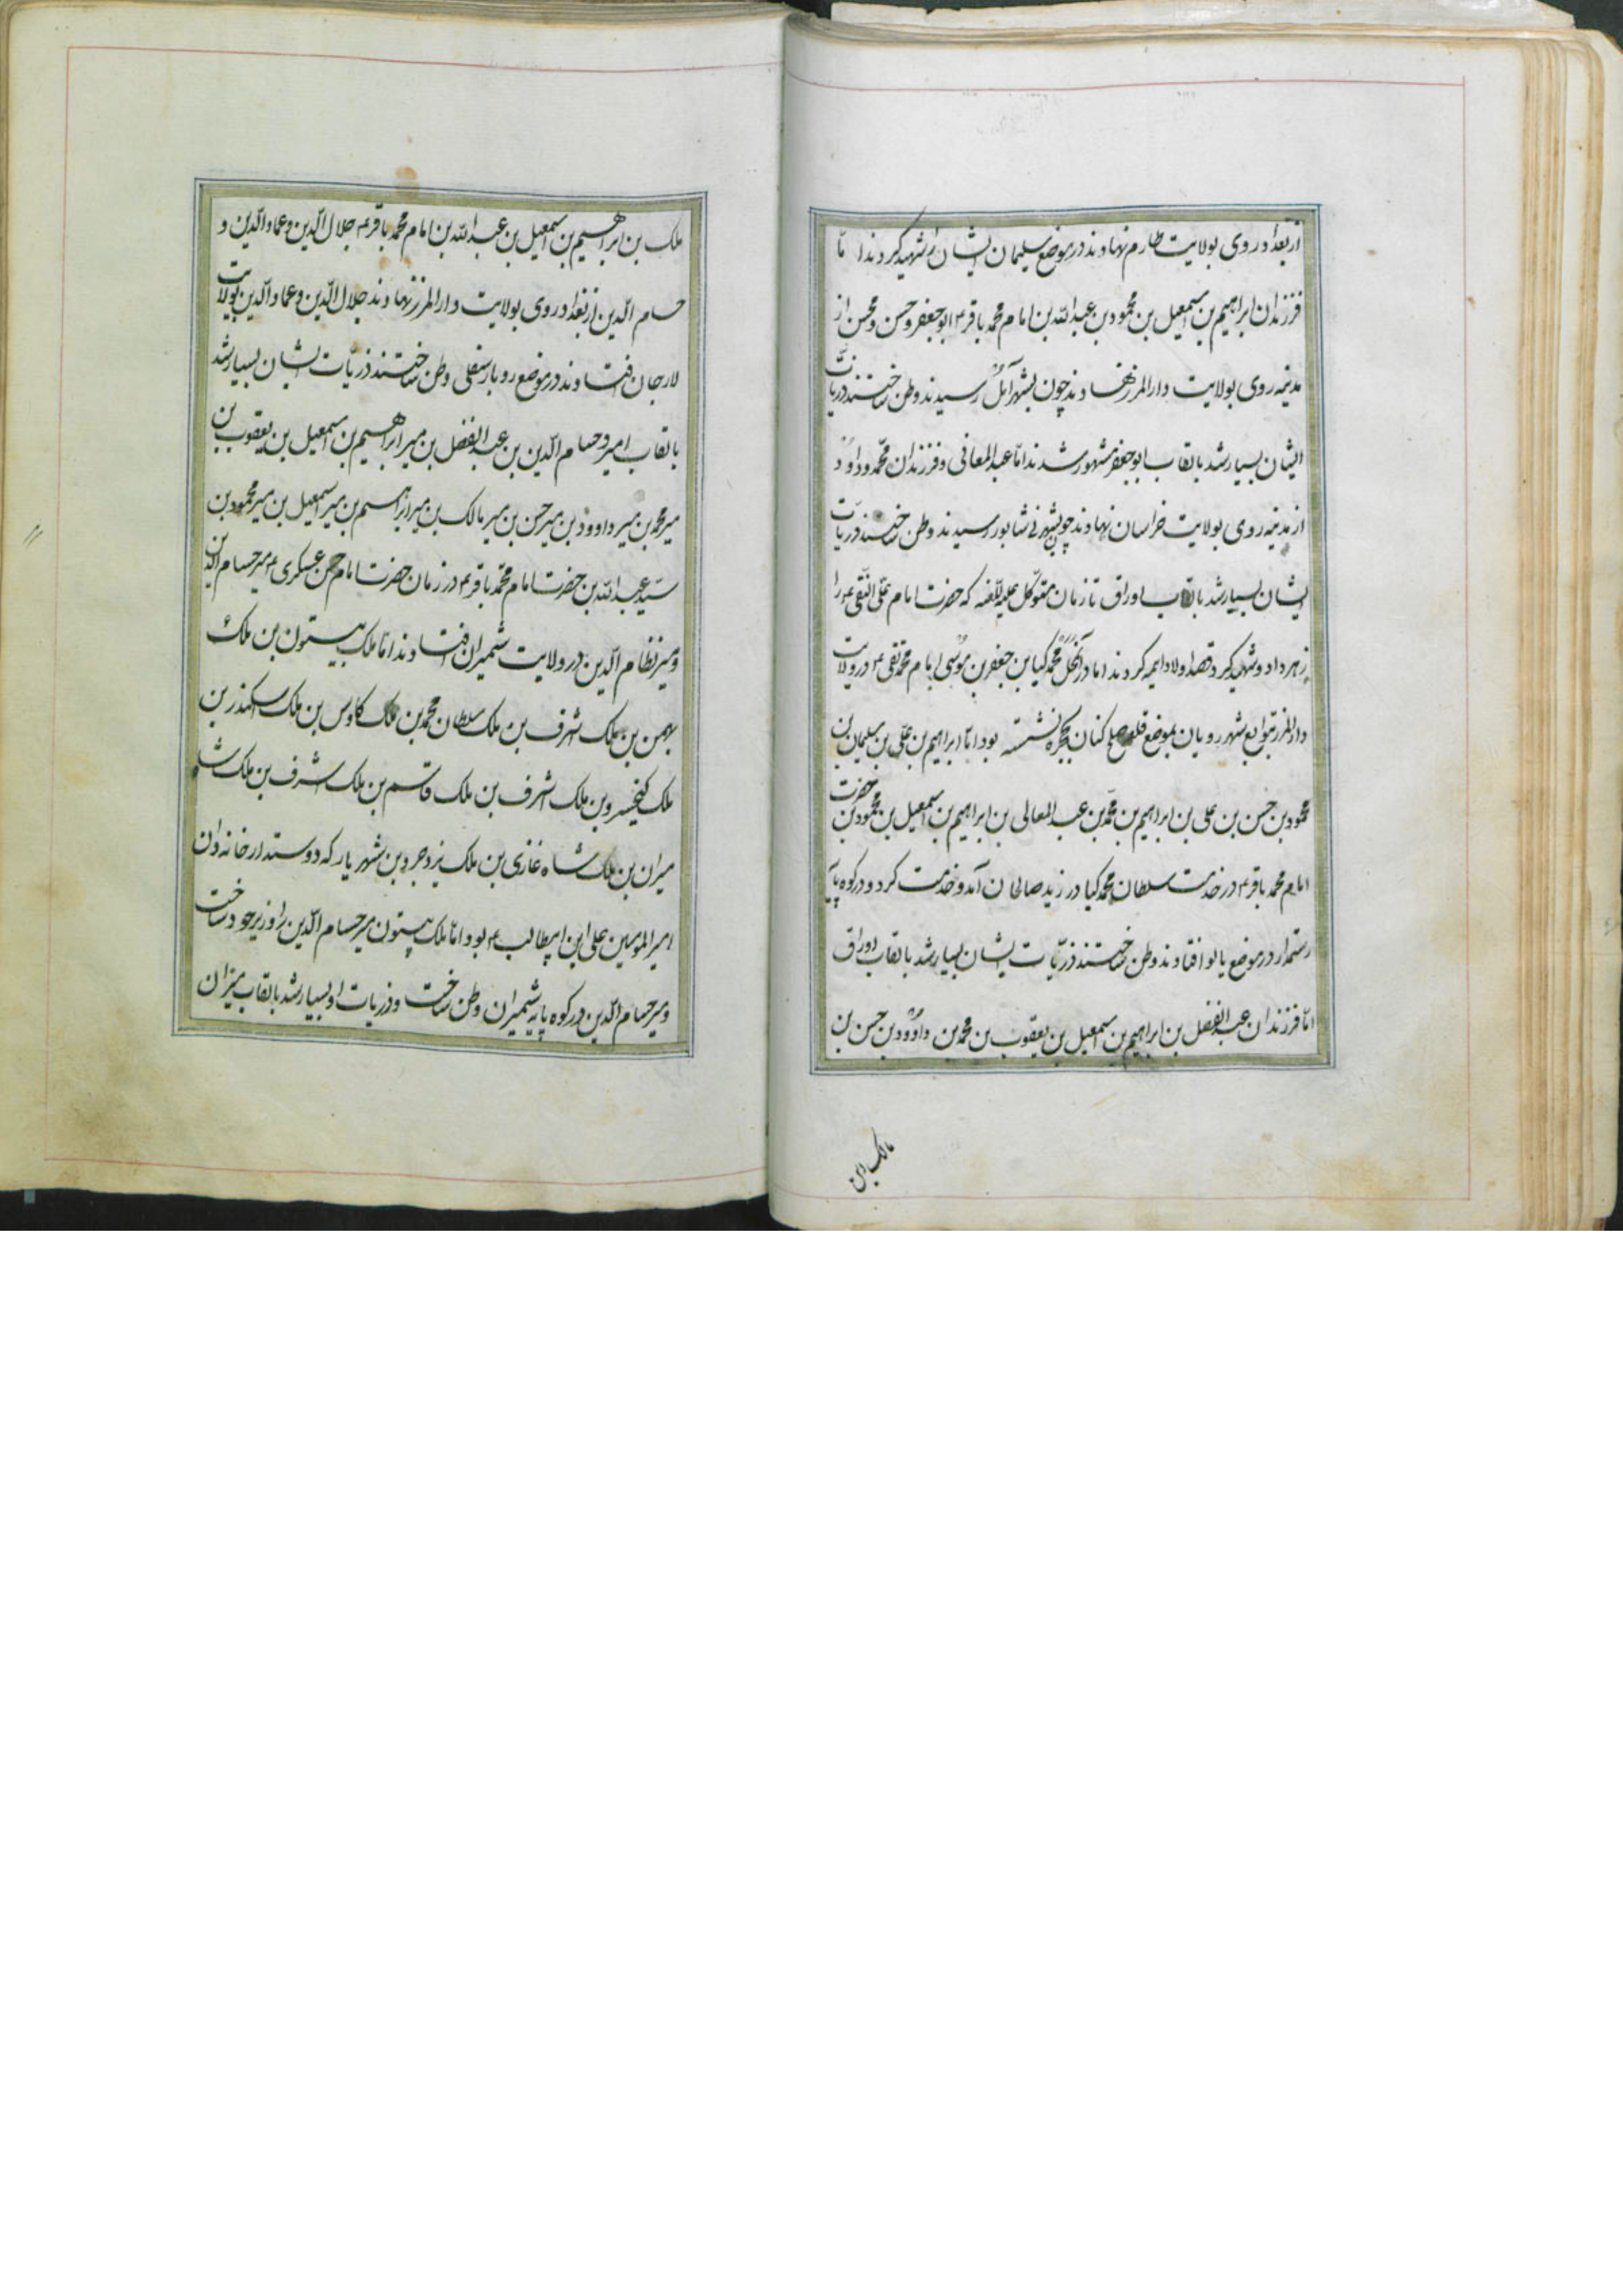 از بغداد روی بولایت طارم نهادند در موضع سلیمان ایشان را شهید کردند اما
فرزندان ابراهیم بن اسمعیل بن محمود بن عبدالله بن امام محمد باقر ۴ ابو جعفر و حسن و محسن از
مدینه روی بولایت دارالمرز نهادند چون بشهر آمل رسیدند و وطن ساختند ذریات
ایشان بسیار شد بالقاب ابو جعفر مشهور شدند اما عبدالمعافی و فرزندان محمد و داوود
از مدینه روی بولایت خراسان نهادند چون بشهر نیشابور رسیدند و وطن ساختند ذریات
ایشان بسیار شد بالقاب اوراق تا زمان متوکل علیه اللعنه که حضرت امام علی النقی ۴ را
زهر داد و شهید کرد قصد اولاد ایمه کردند اما در آنمحل محمد کیا بن جعفر بن موسی امام محمد تقی ۴ در ولایت
دارالمرز بتوابع شهر رویان بموضع قلعه صلح کنان بحجره نشسته بود اما ابراهیم بن علی بن سلیمان بن
محمود بن حسن بن علی بن ابراهیم بن محمد بن عبدالمعالی بن ابراهیم بن اسمعیل بن محمود بن حضرت
امام محمد باقر ۴ در خدمت سلطان محمد کیا در زید صالحان آمد و خدمت کرد و در کوه پایه
رستمدار در موضع یالو افتادند و وطن ساختند ذریات ایشان بسیار شد بالقاب اوراق
اما فرزندان عبدالفضل بن ابراهیم بن اسمعیل بن یعقوب بن محمد بن داوود بن حسن بن
مالک بن
ملک بن ابراهیم بن اسمعیل بن عبدالله بن امام محمد باقر ۴ جلال الدین و عماد الدین و
حسام الدین از بغداد روی بولایت دارالمرز نهادند جلال الدین و عماد الدین بولایت
لارجان افتادند در موضع روبار سفلی وطن ساختند ذریات ایشان بسیار شد
بالقاب امیر و حسام الدین بن عبدالفضل بن میر ابراهیم بن اسمعیل بن یعقوب بن
میر محمد بن میر داوود بن میر حسن بن میر مالک بن میر ابراهیم بن میر اسمعیل بن میر محمود بن
سید عبدالله بن حضرت امام محمد باقر ۴ در زمان حضرت امام حسن عسکری ۴ میر حسام الدین
و میر نظام الدین در ولایت شمیران افتادند اما ملک بیستون بن ملک
بهمن بن ملک اشرف بن ملک سلطان محمد بن ملک کاوس بن ملک اسکندر بن
ملک کیخسرو بن ملک اشرف بن ملک قاسم بن ملک اشرف بن ملک شاه
میران بن ملک شاه غازی بن ملک یزدجرد بن شهریار که دوستدار خانه دان
امیر المومنین علی ابن ابیطالب ۴ بود اما ملک بیستون میر حسام الدین را وزیر خود ساخت
و میر حسام الدین در کوه پایه شمیران وطن ساخت و ذریات او بسیار شد بالقاب میران